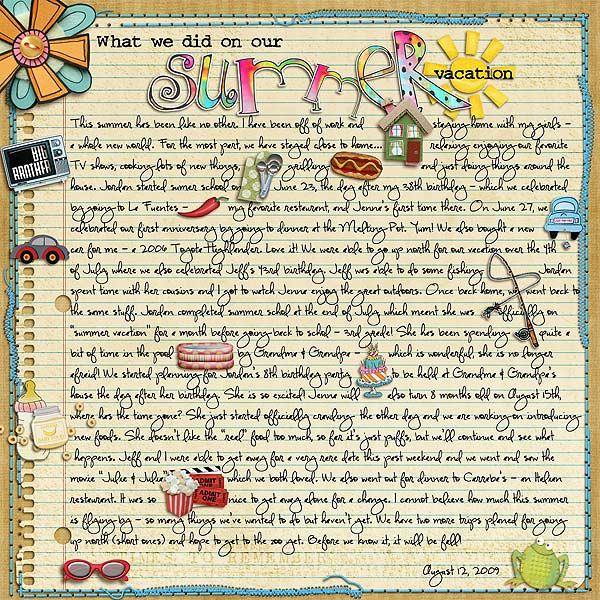 What we did on our
summer
vacation
This summer has been like no other. I have been off of work and staying home with my girls -
a whole new world. For the most part, we have stayed close to home... relaxing, enjoying our favorite
TV shows, cooking lots of new things, grilling and just doing things around the
house. Jordan started sumer school on June 23, the day after my 38th birthday - which we celebrated
by going to La Fuentes - my favorite restaurant, and Jenna's first time there. On June 27, we
celebrated our first anniversary by going to dinner at the Melting Pot. Yum! We also bought a new
car for me - a 2006 Toyota Highlander. Love it! We were able to go up north for our vacation over the 4th
of July where we also celebrated Jeff's 43rd birthday. Jeff was able to do some fishing Jordan
spent time with her cousins and I got to watch Jenna enjoy the great outdoors. Once back home, we went back to
the same stuff. Jordan completed summer school at the end of July which meant she was officially on
"summer vacation" for a month before going back to school - 3rd grade! She has been spending quite a
bit of time in the pool by Grandma & Grandpa which is wonderful, she is no longer
afraid! We started planning for Jordan's 8th birthday party to be held at Grandma & Grandpa's
house the day after her birthday. She is so excited! Jenna will also turn 8 months old on August 15th,
where has the time gone? She just started officially crawling the other day and we are working on introducing
new foods. She doesn't like the "real" food too much, so far it's just puffs, but we'll continue and see what
happens. Jeff and I were able to get away for a very rare date this past weekend and we went and saw the
movie "Julie & Julia" which we both loved. We also went out for dinner to Carraba's - an Italian
restaurant. It was so nice to get away alone for a change. I cannot believe how much this summer
is flying by - so many things we've wanted to do but haven't yet. We have two more trips planned for going
up north (short ones) and hope to get to the zoo yet. Before we know it, it will be fall!
August 12, 2009
BIG
BROTHER
ADMIT
ONE
ADMIT
ONE